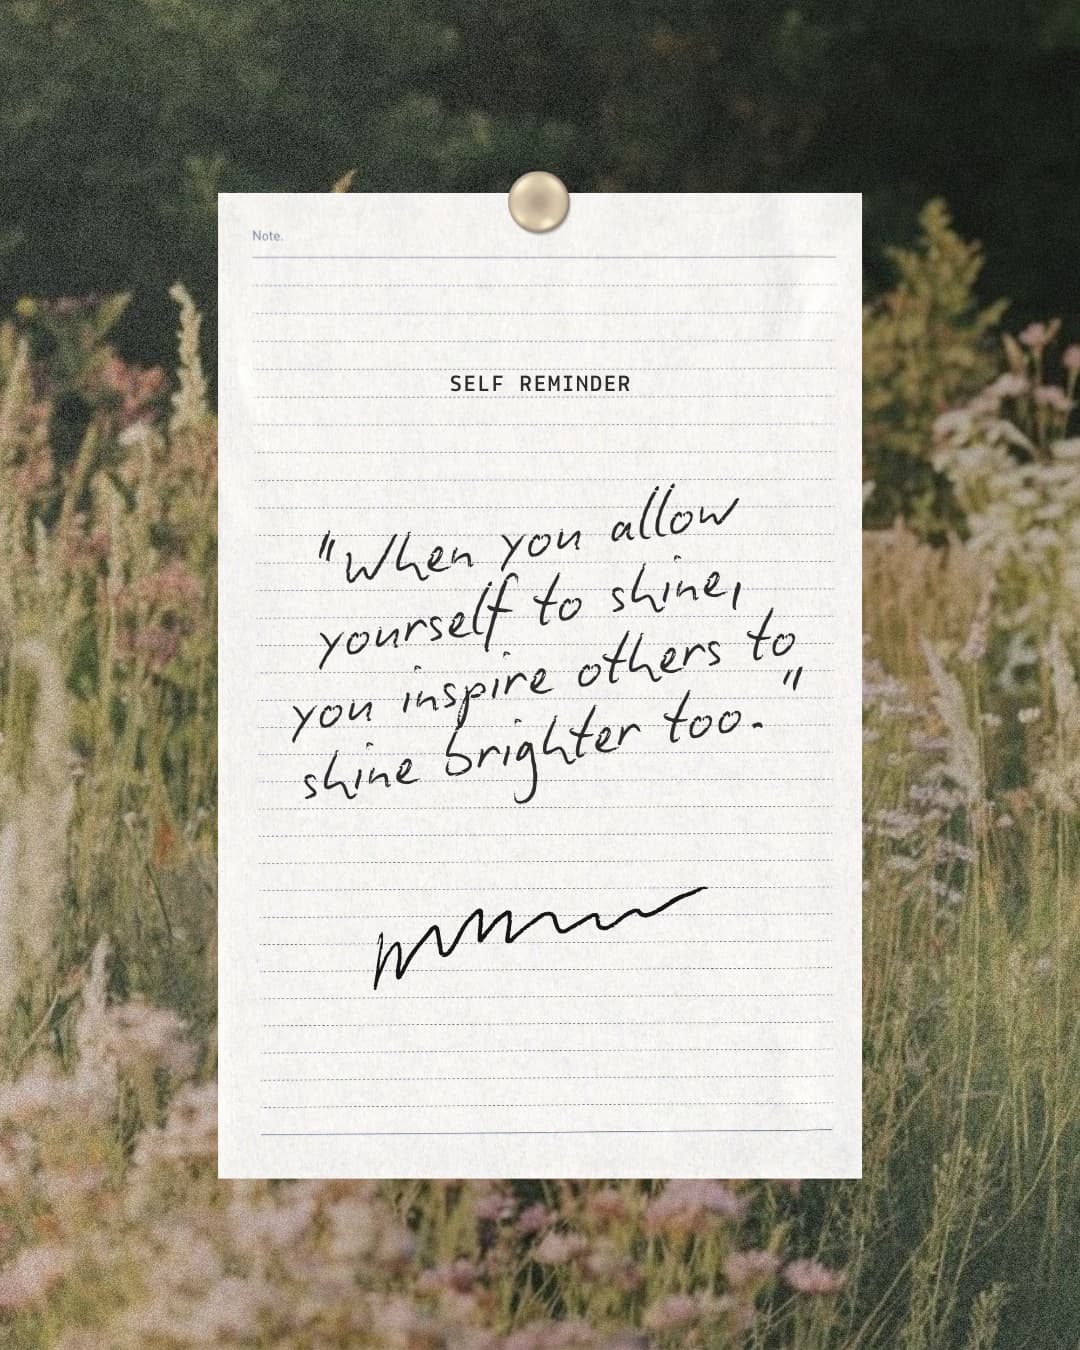 Note.
SELF REMINDER
"When you allow
yourself to shine,
you inspire others to
shine brighter too."